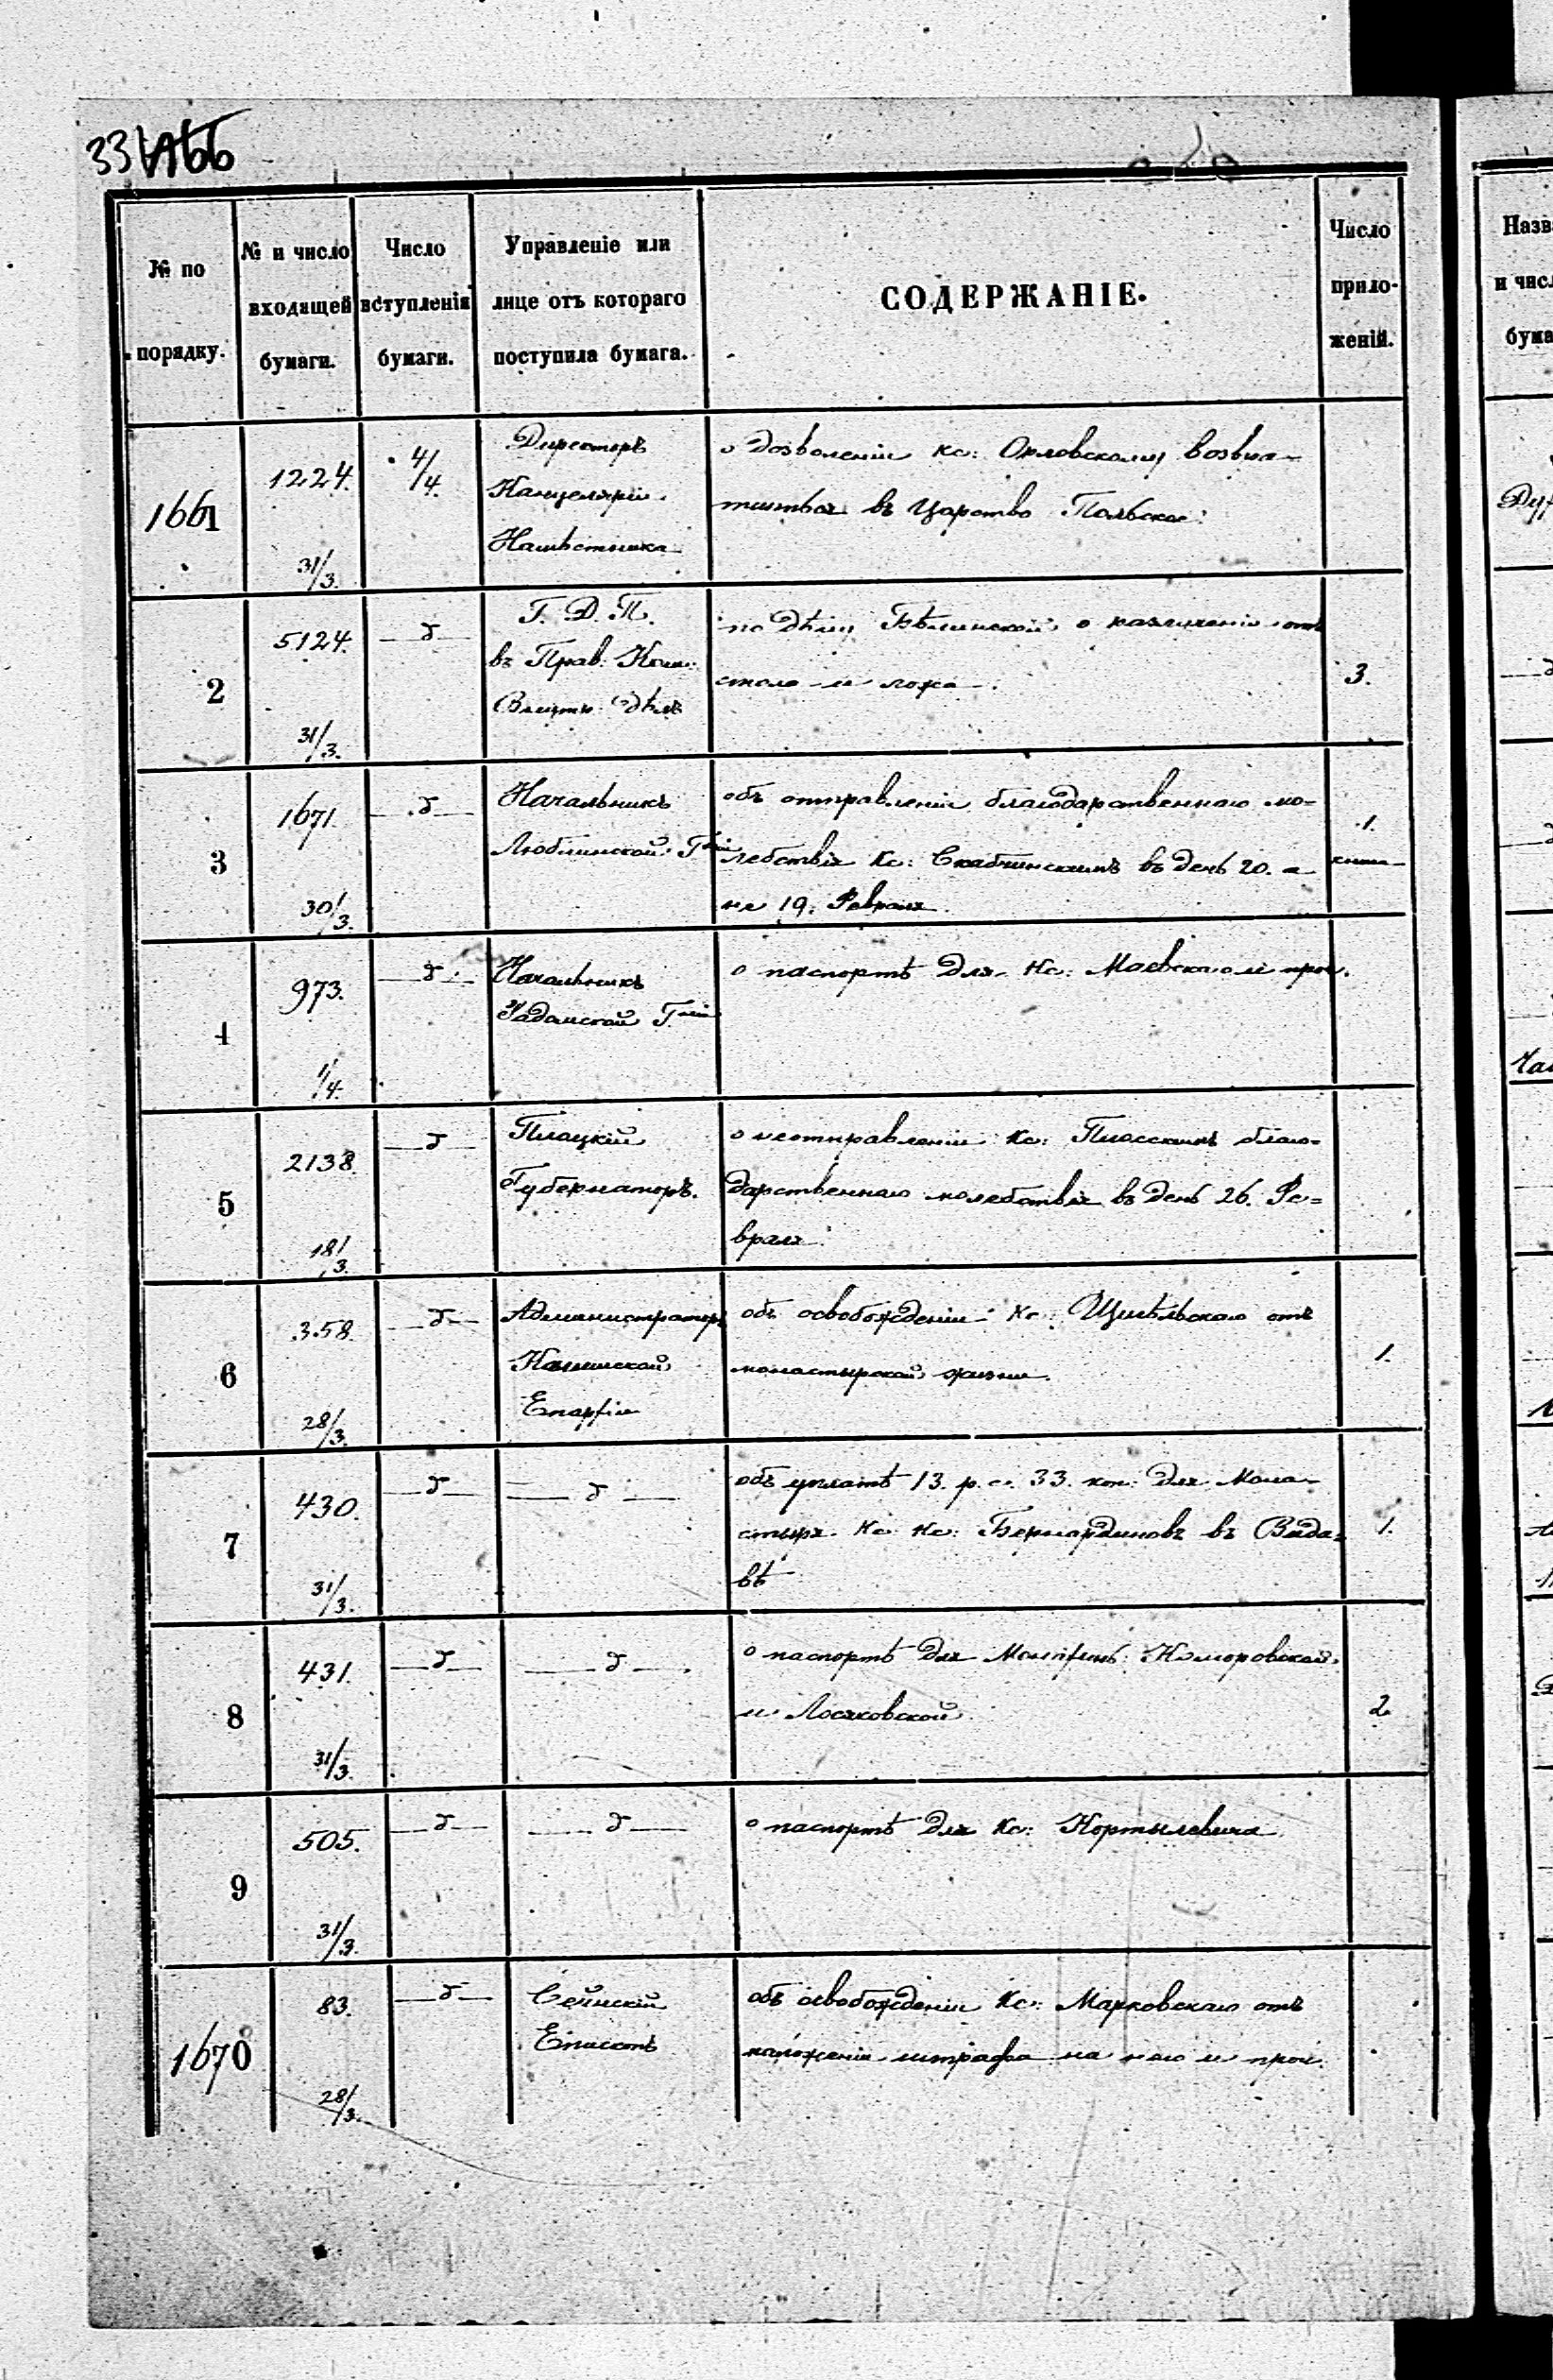 33
№ по порядку.
№ и число входящей бумаги.
Число вступленія бумаги.
Управленіе или лице отъ котораго поступила бумага.
СОДЕРЖАНІЕ.
Число приложеній.
1661
1224. 31/3.
4/4.
Директоръ
Канцеляріи
Намѣстника
о дозволеніи Кс: Орловскому возвра-
титься въ Царство Польское.
2
5124. 31/3.
— д —
Г. Д. П.
въ Прав. Ком.
Внутр. Дѣлъ
по дѣлу Бѣлинской о разлученіи отъ
стола и ложа.
3.
3
1671. 30/3.
— д —
Начальникъ
Люблинской Гніи
объ отправленіи благодарственнаго мо-
лебствія Кс: въ день 20. а
не 19. Февраля.
1.
4
973. 1/4.
— д —
Начальникъ
Радомской Гніи
о паспортѣ для Кс: Маевскаго и проч.
5
2138. 18/3.
— д —
Плоцкій
Губернаторъ.
о неотправленіи Кс: благо-
дарственнаго молебствія въ день 26. Фе-
враля.
6
358. 28/3.
— д —
Администраторъ
Калишской
Епархіи
объ освобожденіи Кс: отъ
монастырской жизни.
1.
7
430. 31/3.
— д —
— д —
объ уплатѣ 13. р. с. 33. коп. для Мона-
стыря Кс: Кс: Бернардиновъ въ Вида-
вѣ
1.
8
431. 31/3.
— д —
— д —
о паспортѣ для Монахинь: Коморовской
и Лосяковской.
2
9
505. 31/3.
— д —
— д —
о паспортѣ для Кс: Кортылевича.
1670
83. 28/3.
— д —
Сейнскій
Епископъ
объ освобожденіи Кс: Марковскаго отъ
наложенія штрафа на него и проч.